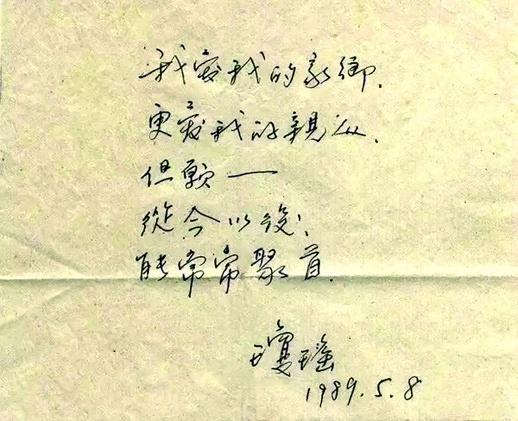 我愛我的家鄉，
更愛我的親人，
但願——
從今以後，
能常常聚首。
瓊瑤
1989.5.8